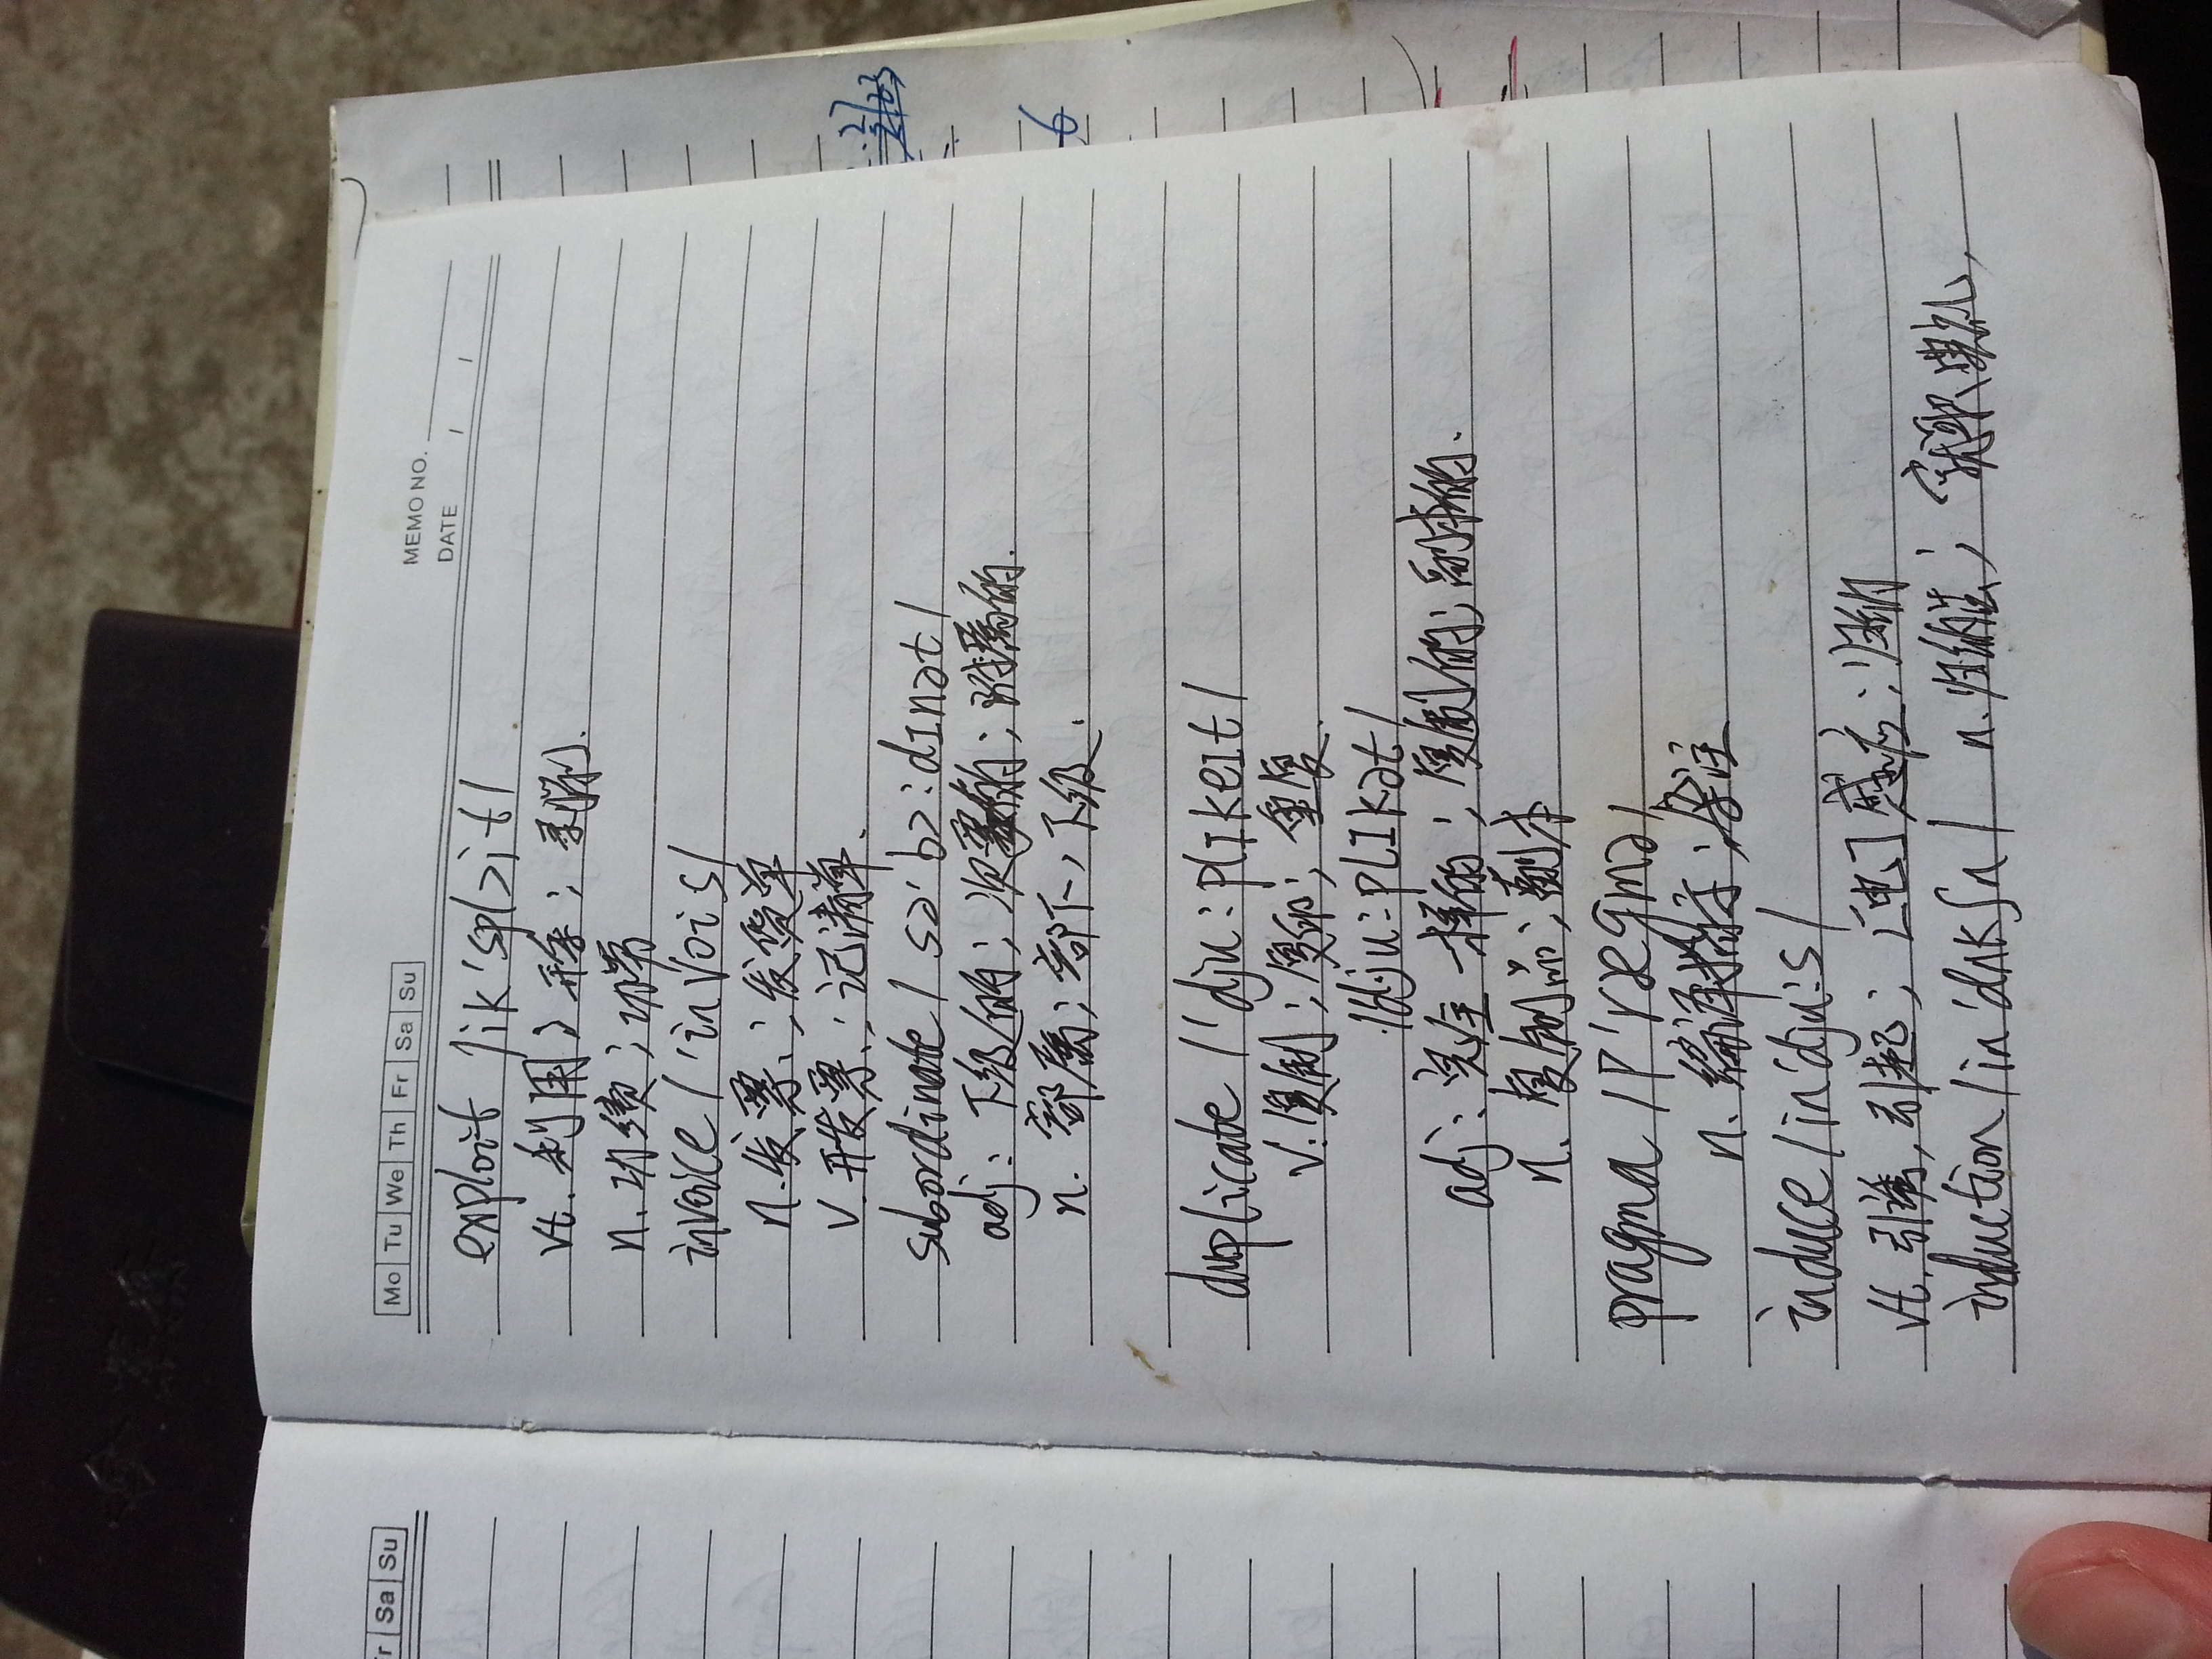 r Sa Su
Mo Tu We Th Fr Sa Su
MEMO NO.
DATE / /
exploit /ik'splɔit/
vt. 利用; 开采; 剥削.
n. 功绩; 功劳
invoice /'invois/
n. 发票; 发货单
v. 开发票; 记清单.
subordinate /sə'bɔ:dɪnət/
adj: 下级的; 次要的; 附属的.
n. 部属; 部下, 下级.
duplicate /'dju:plɪkeɪt/
v. 复制; 复印; 重复.
/'dju:plɪkət/
adj: 完全一样的; 复制的; 副本的.
n. 复制品; 副本
pragma /p'rægmə/
n. 编译指示; 杂注
induce /in'dju:s/
vt. 引诱, 引起; [电] 感应; 归纳
induction /in'dʌkʃn/ n. 归纳法; 就职典礼,
6